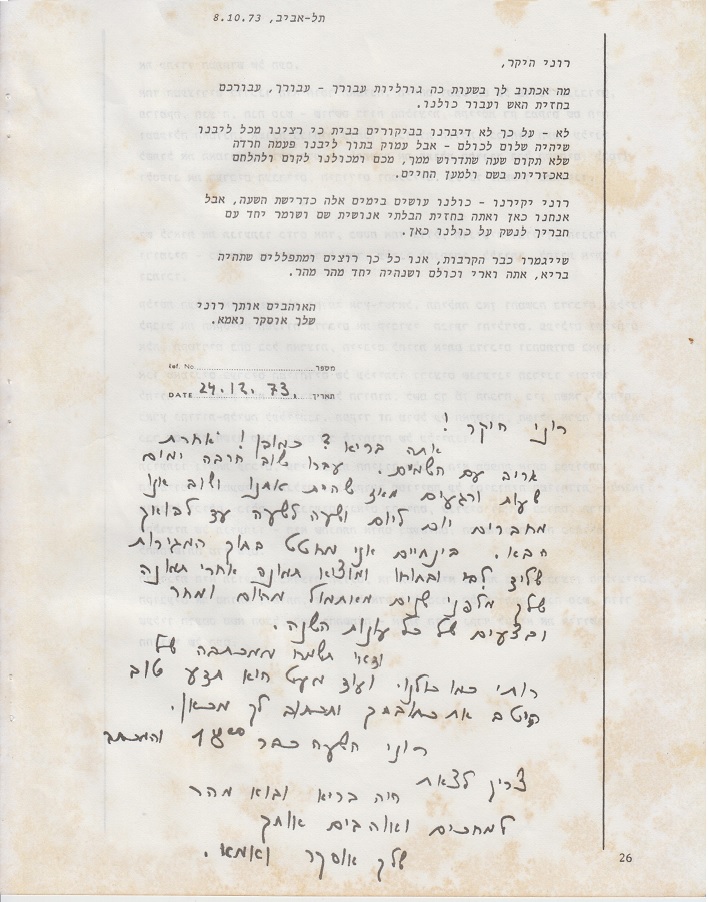 תל-אביב, 8.10.73
רוני היקר,
מה אכתוב לך בשעות כה גורליות עבורך - עבורך, עבורכם
בחזית האש ועבור כולנו.
לא - על כך לא דיברנו בביקורים בבית כי רצינו מכל ליבנו
שיהיה שלום לכולם - אבל עמוק בתוך ליבנו פעמה חרדה
שלא תקום שעה שתדרוש ממך, מכם ומכולנו לקום ולהלחם
באכזריות בשם ולמען החיים.
רוני יקירנו - כולנו עושים בימים אלה כדרישת השעה, אבל
אנחנו כאן ואתה בחזית הבלתי אנושית שם ושומר יחד עם
חבריך לנשק על כולנו כאן.
שייגמרו כבר הקרבות, אנו כל כך רוצים ומתפללים שתהיה
בריא, אתה וארי וכולם ושנהיה יחד מהר מהר.
האוהבים אותך רוני
שלך אוסקר ואמא.
מספר Ref. No.
תאריך 24.12.73 DATE
רוני היקר!
אתה בריא? כמובן! אחרת
אריב עם השמים. עברו שוב הרבה ימים
שעות ורגעים מאז שהית אתנו ושוב אנו
מחברים יום ליום ושעה לשעה עד לבואך
הבא. בינתיים אני מחטט בתוך המגירות
שליד ומוצא תמונה אחרי תמונה
שלך מלפני שנים מאתמול מהיום ומחר
ובצעים של כל עונות השנה.
ודאי תשמח ממכתבה של
רותי כמו כולנו. ועוד מעט היא תדע טוב
היטב את כתובתך ותכתוב לך מכאן.
רוני השעה כבר 18°° והמכתב
צריך לצאת היה בריא ובוא מהר
למחכים ואוהבים אותך
שלך אוסקר ואמא.
26